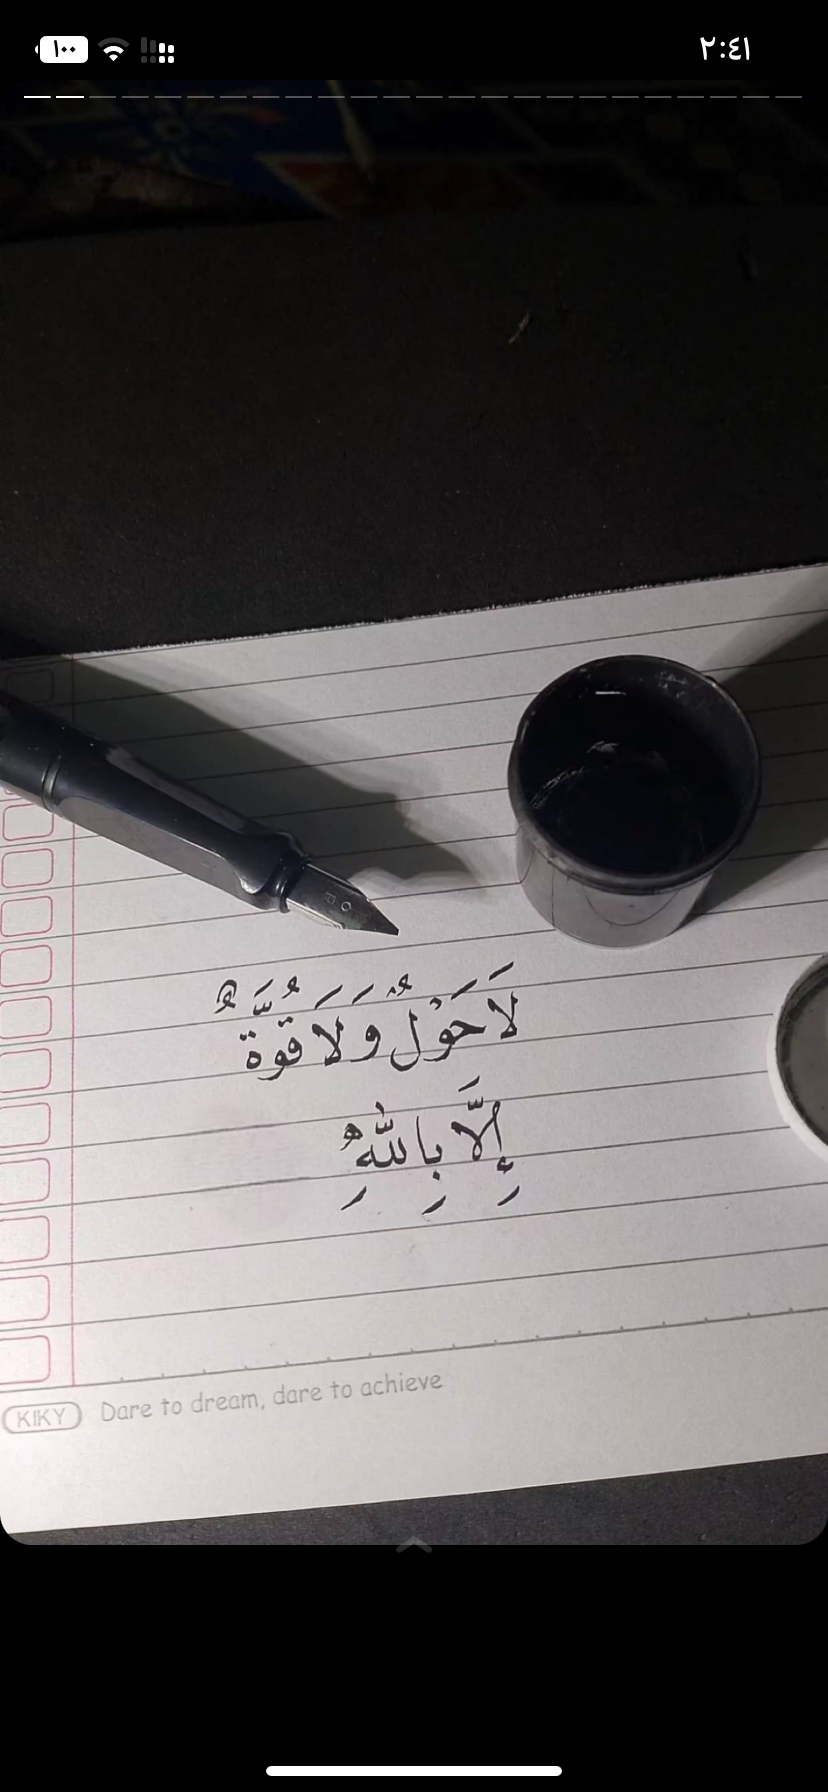 ١٠٠
٢:٤١
لَاحَوْلٌ وَلَا قُوَّةٌ
إِلَّا بِاللّٰهِ
KIKY Dare to dream, dare to achieve